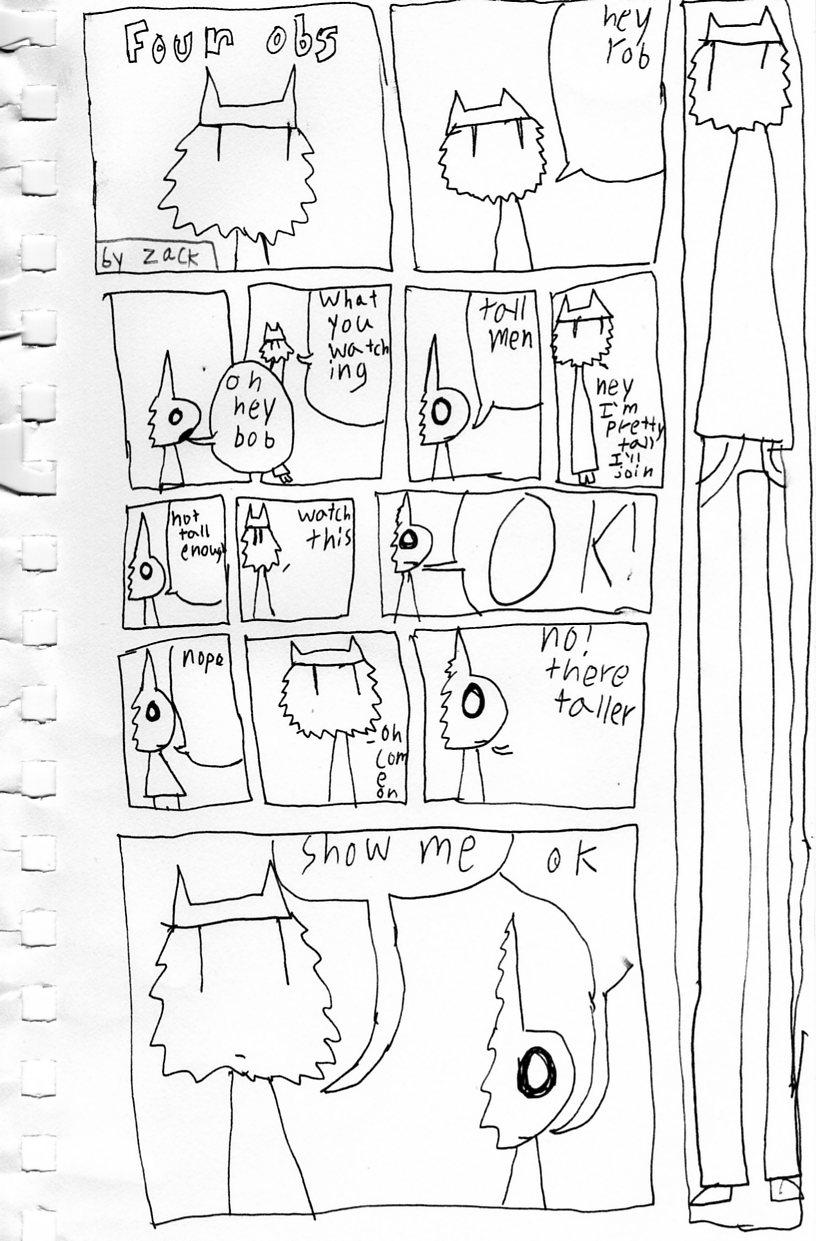 Foun obs
by zack
hey
rob
oh
hey
bob
What
you
watch
ing
tall
men
hey
I'm
pretty
tall
I'll
join
not
tall
enough
watch
this
OK!
nope
oh
com
e
on
no!
there
taller
show me
ok